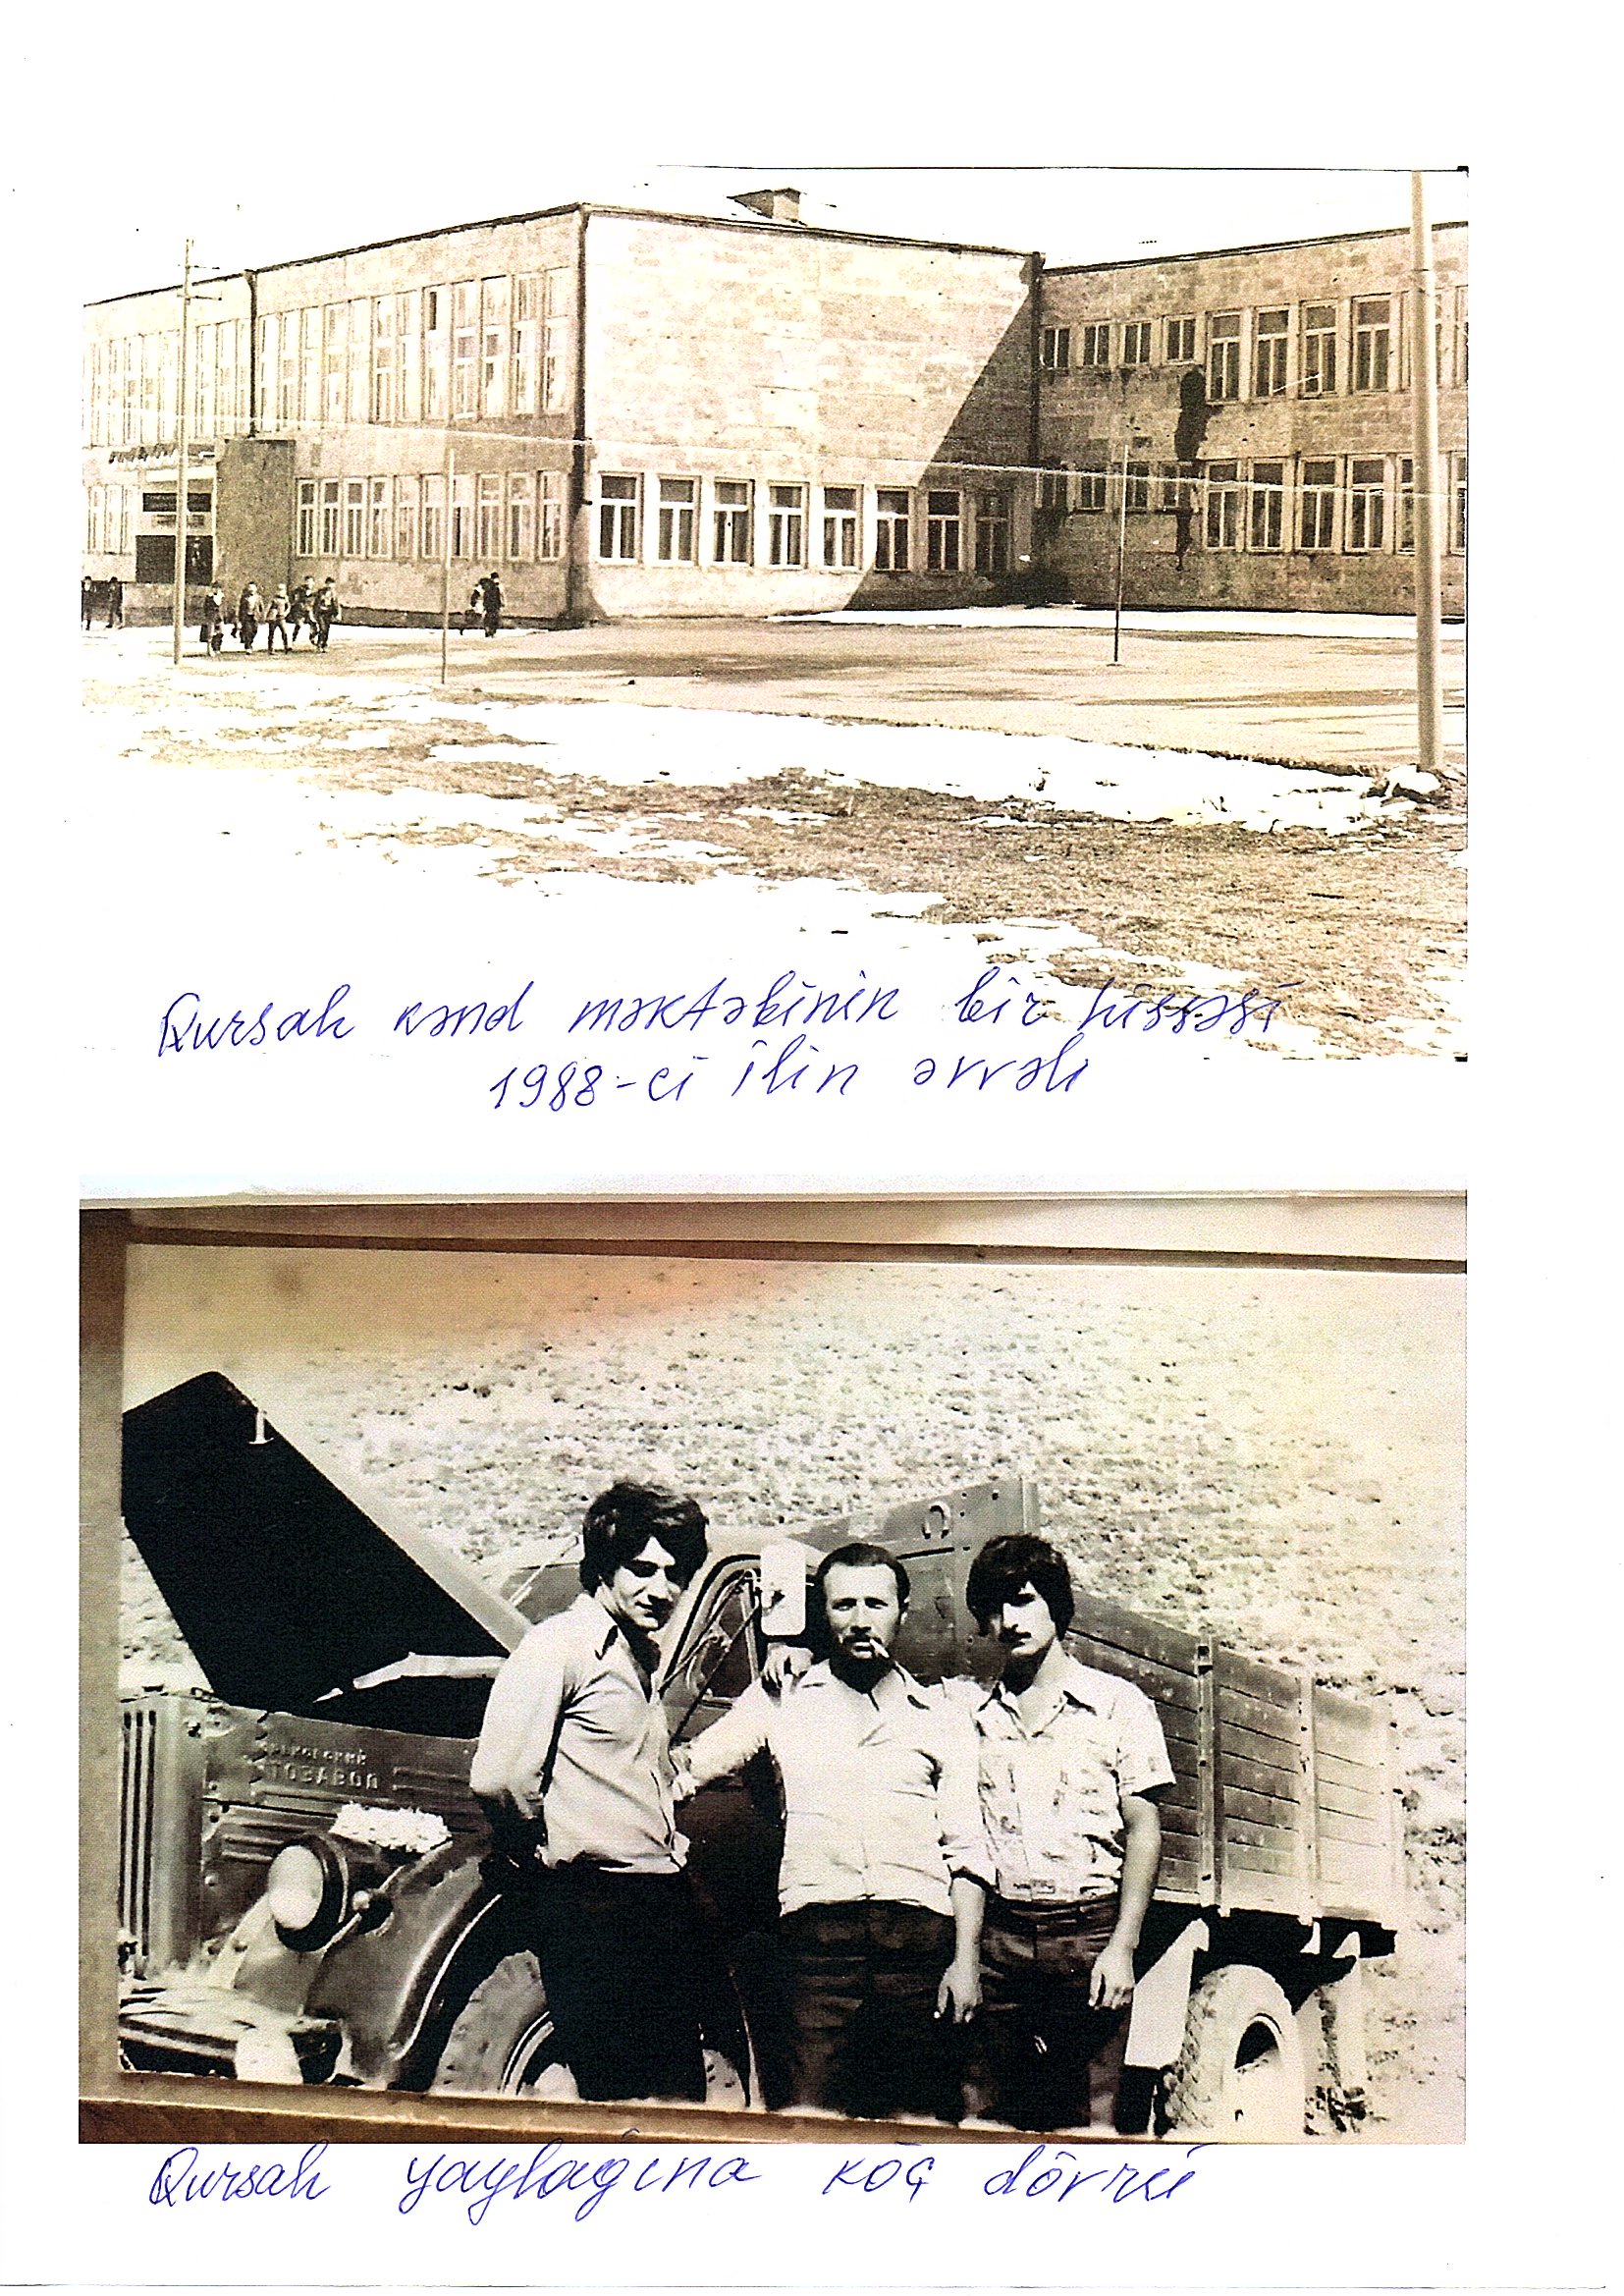 Qursalı kənd məktəbinin bir hissəsi
1988-ci ilin əvvəli
Qursalı yaylağına köç dövrü